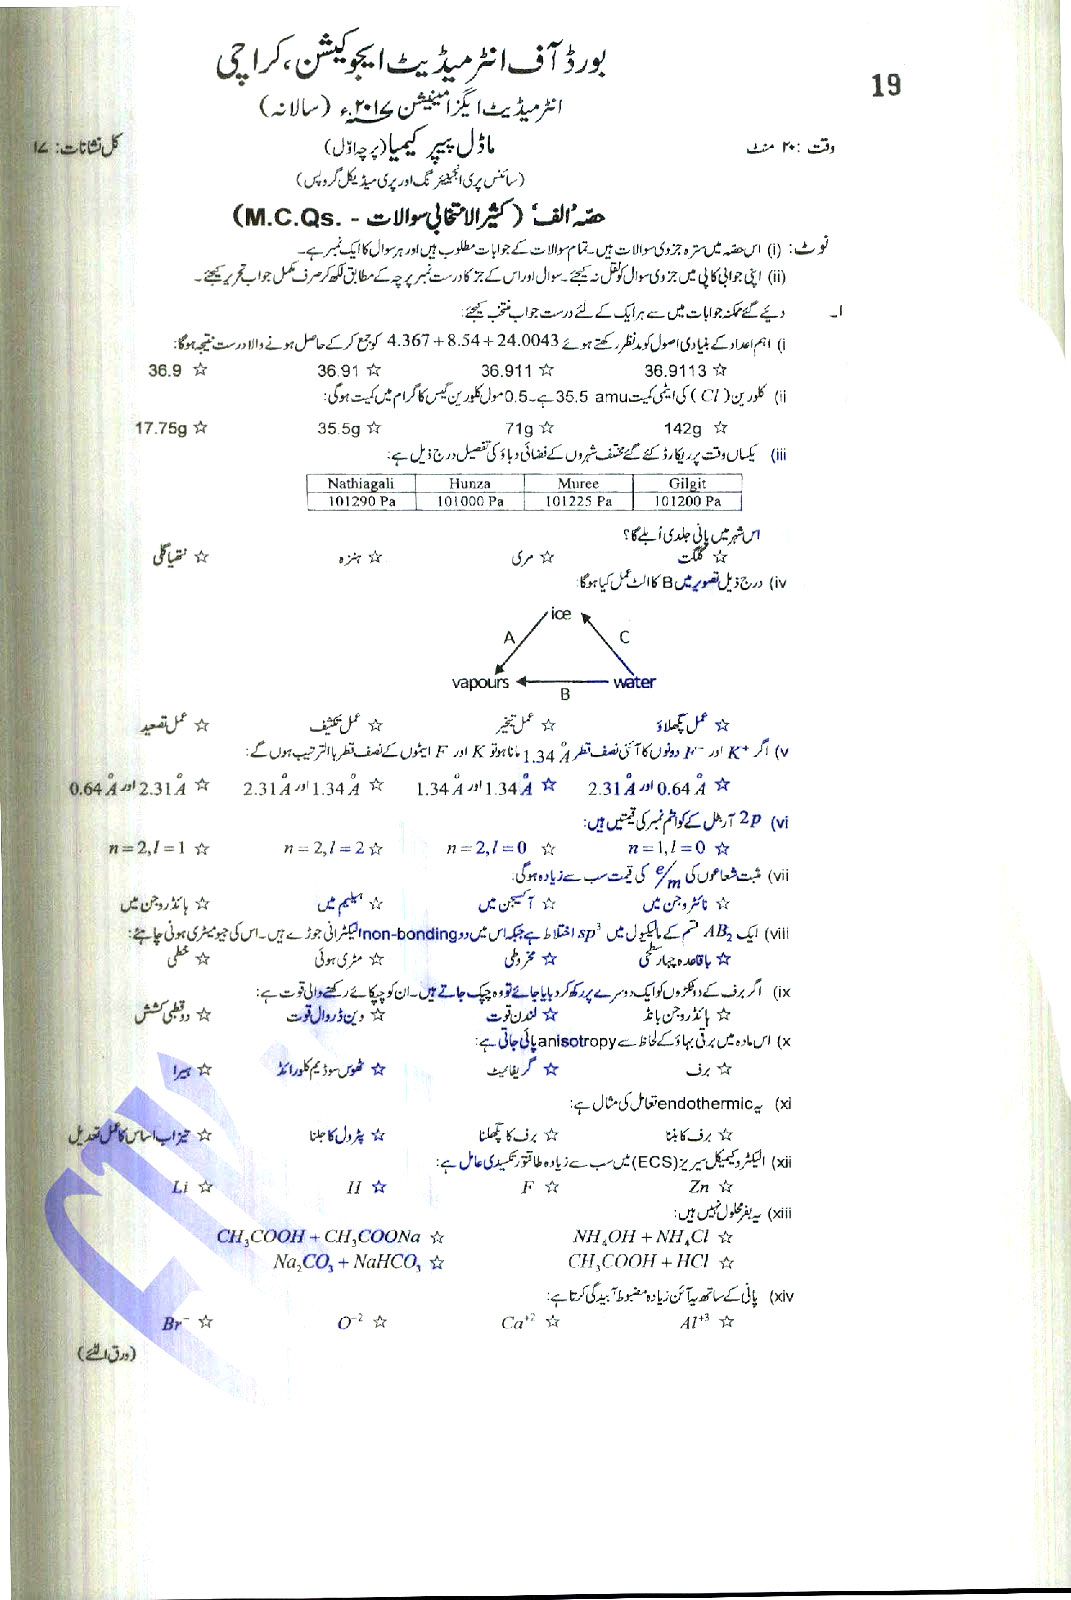 بورڈ آف انٹرمیڈیٹ ایجوکیشن، کراچی
19
انٹرمیڈیٹ ایگزامینیشن ۲۰۱۷ء (سالانہ)
وقت : ۲۰ منٹ
ماڈل پیپر کیمیا (پرچہ اوّل)
کل نشانات: ۱۷
(سائنس پری انجینئرنگ اور پری میڈیکل گروپس)
حصّہ 'الف' (کثیر الانتخابی سوالات - M.C.Qs.)
نوٹ: (i) اس حصّہ میں سترہ جزوی سوالات ہیں۔ تمام سوالات کے جوابات مطلوب ہیں اور ہر سوال کا ایک نمبر ہے۔
(ii) اپنی جوابی کاپی میں جزوی سوال کو نقل نہ کیجئے۔ سوال اور اس کے جز کا درست نمبر پرچہ کے مطابق لکھ کر صرف مکمل جواب تحریر کیجئے۔
۱۔ دیئے گئے ممکنہ جوابات میں سے ہر ایک کے لئے درست جواب منتخب کیجئے:
(i اہم اعداد کے بنیادی اصول کو مدنظر رکھتے ہوئے 4.367 + 8.54 + 24.0043 کو جمع کر کے حاصل ہونے والا درست نتیجہ ہوگا:
☆ 36.9113 ☆ 36.911 ☆ 36.91 ☆ 36.9
(ii کلورین (Cl) کی ایٹمی کمیت 35.5 amu ہے۔ 0.5 مول کلورین گیس کا گرام میں کمیت ہوگی:
☆ 142g ☆ 71g ☆ 35.5g ☆ 17.75g
(iii یکساں وقت پر ریکارڈ کئے گئے مختلف شہروں کے فضائی دباؤ کی تفصیل درج ذیل ہے:
Nathiagali Hunza Muree Gilgit
101290 Pa 101000 Pa 101225 Pa 101200 Pa
اس شہر میں پانی جلدی اُبلے گا؟
☆ گلگت ☆ مری ☆ ہنزہ ☆ نتھیاگلی
(iv درج ذیل تصویر میں B کا الٹ عمل کیا ہوگا:
ice
A C
vapours water
B
☆ عمل پگھلاؤ ☆ عمل تبخیر ☆ عمل تکثیف ☆ عمل تصعید
(v اگر K⁺ اور F⁻ دونوں کا آئنی نصف قطر 1.34 Å مانا ہو تو K اور F ایٹموں کے نصف قطر بالترتیب ہوں گے:
☆ 0.64 Å اور 2.31 Å ☆ 1.34 Å اور 1.34 Å ☆ 1.34 Å اور 2.31 Å ☆ 2.31 Å اور 0.64 Å
(vi 2p آربٹل کے کوانٹم نمبر کی قیمتیں ہیں:
☆ n=1,l=0 ☆ n=2,l=0 ☆ n=2,l=2 ☆ n=2,l=1
(vii مثبت شعاعوں کی e/m کی قیمت سب سے زیادہ ہوگی:
☆ نائٹروجن میں ☆ آکسیجن میں ☆ ہیلیم میں ☆ ہائڈروجن میں
(viii ایک AB₂ قسم کے مالیکیول میں sp³ اختلاط ہے جبکہ اس میں دو non-bonding الیکٹرانی جوڑے ہیں۔ اس کی جیومیٹری ہونی چاہئے:
☆ باقاعدہ چہار سطحی ☆ مخروطی ☆ مڑی ہوئی ☆ خطی
(ix اگر برف کے دو ٹکڑوں کو ایک دوسرے پر رکھ کر دبایا جائے تو وہ چپک جاتے ہیں۔ ان کو چپکائے رکھنے والی قوت ہے:
☆ ہائڈروجن بانڈ ☆ لندن قوت ☆ وین ڈروال قوت ☆ دو قطبی کشش
(x اس مادہ میں برقی بہاؤ کے لحاظ سے anisotropy پائی جاتی ہے:
☆ برف ☆ گریفائیٹ ☆ ٹھوس سوڈیم کلورائڈ ☆ ہیرا
(xi یہ endothermic تعامل کی مثال ہے:
☆ برف کا بننا ☆ برف کا پگھلنا ☆ پٹرول کا جلنا ☆ تیزاب اساس کا عمل تعدیل
(xii الیکٹروکیمیکل سیریز (ECS) میں سب سے زیادہ طاقتور تکسیدی عامل ہے:
☆ Zn ☆ F ☆ H ☆ Li
(xiii یہ بفر محلول نہیں ہیں:
☆ NH₄OH + NH₄Cl ☆ CH₃COOH + CH₃COONa
☆ CH₃COOH + HCl ☆ Na₂CO₃ + NaHCO₃
(xiv پانی کے ساتھ یہ آئن زیادہ مضبوط آبیدگی کرتا ہے:
☆ Al⁺³ ☆ Ca⁺² ☆ O⁻² ☆ Br⁻
(ورق الٹئے)